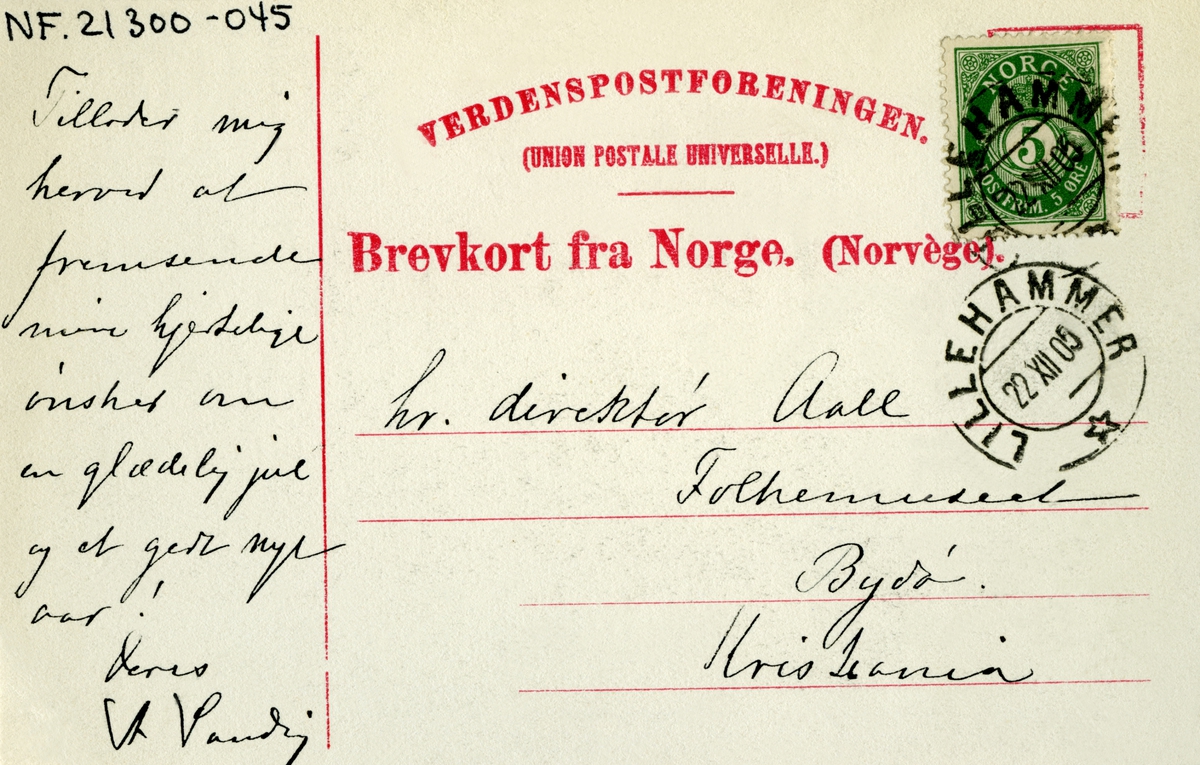 NF. 21300-045
Tillader mig
herved at
fremsende
mine hjertelige
ønsker om
en glædelig jul
og et godt nyt
aar!
Deres
A Sandvig
VERDENSPOSTFORENINGEN.
(UNION POSTALE UNIVERSELLE.)
Brevkort fra Norge. (Norvège).
NORGE
5
POSTFRIM. 5 ØRE
LILLEHAMMER
XII 05
LILLEHAMMER
22 XII 05
hr. direktør Aall
Folkemuseet
Bydø.
Kristiania